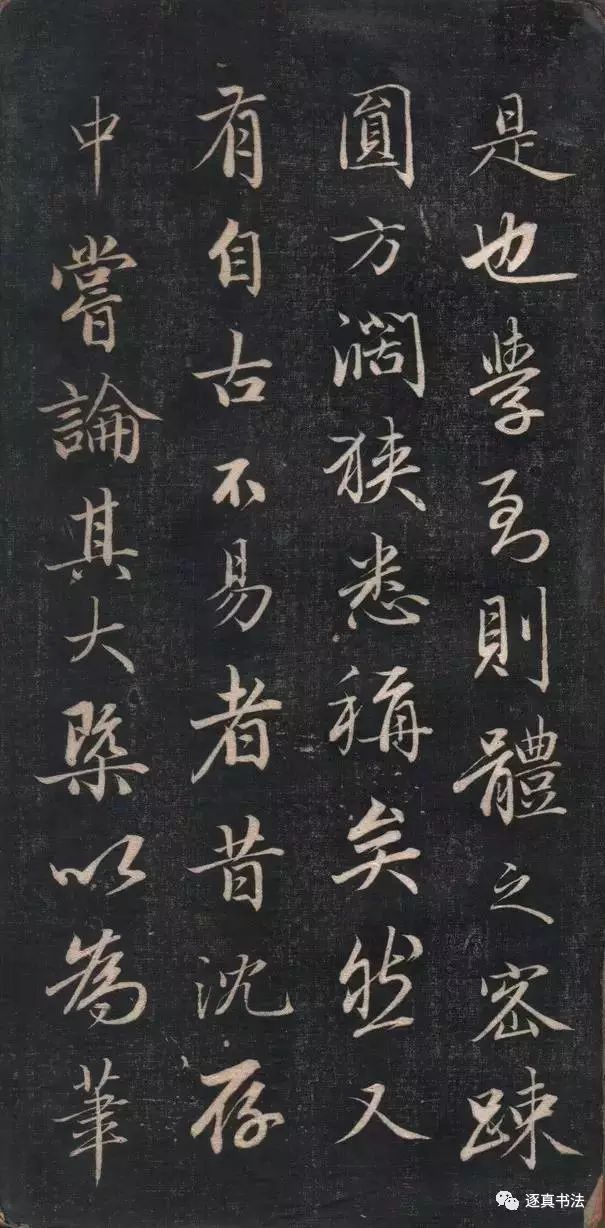 是也學到則體之密踈
圓方濶狹悉稱矣然又
有自古不易者昔沈存
中嘗論其大槩以為筆
逐真书法